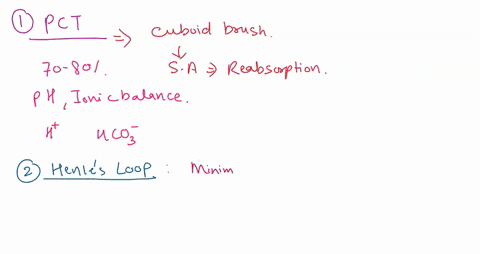 ① PCT => cuboid brush.
↓
70-80%. S.A => Reabsorption.
pH, Ionic balance.
H⁺ HCO₃⁻
② Henle's Loop : Minim